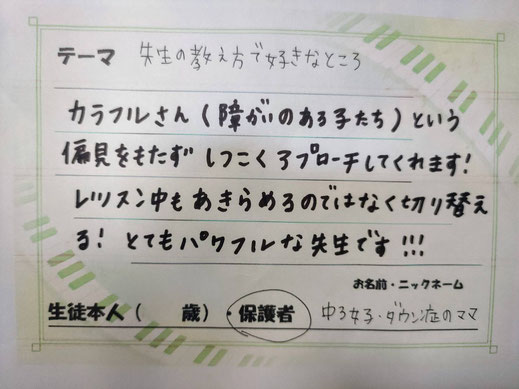 テーマ 先生の教え方で好きなところ
カラフルさん(障がいのある子たち)という
偏見をもたず しつこくアプローチしてくれます!
レッスン中もあきらめるのではなく切り替え
る! とてもパワフルな先生です!!!
お名前・ニックネーム
生徒本人( 歳)・保護者 中3女子・ダウン症のママ